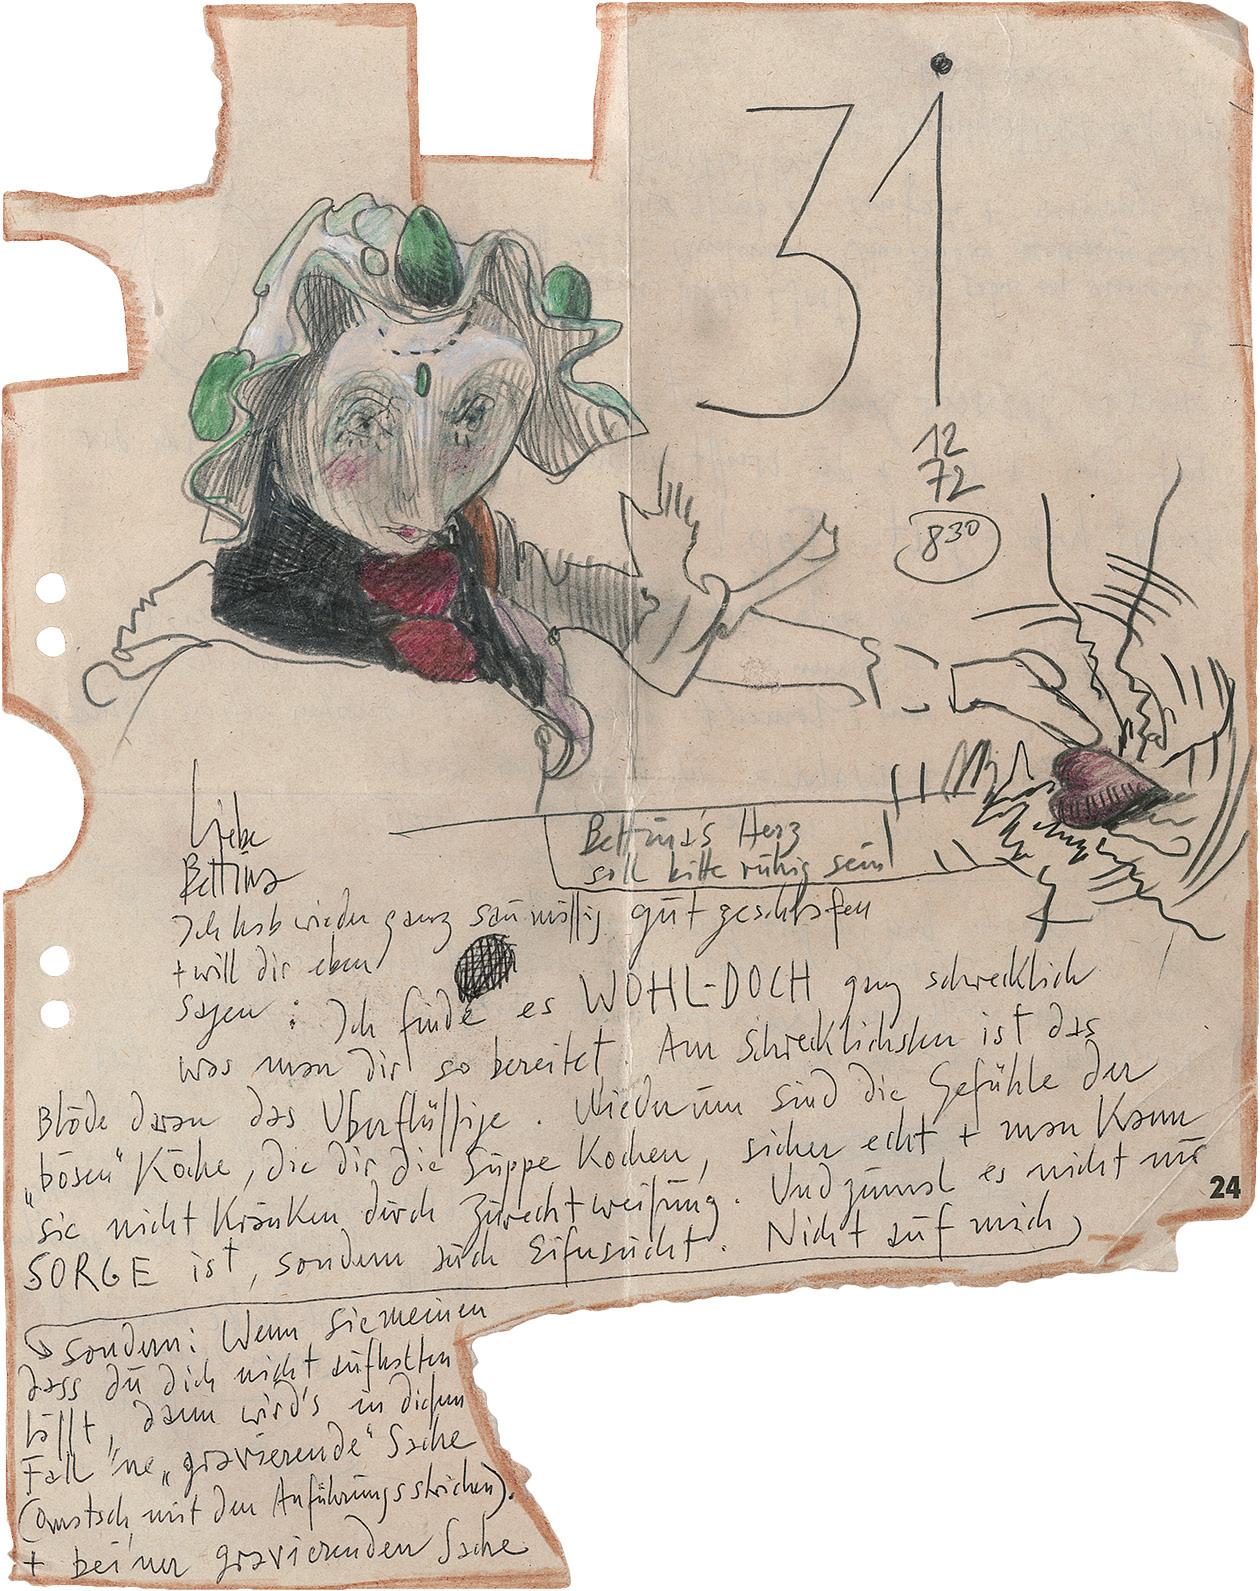 31
12
72
8 30
Bettina's Herz
soll bitte ruhig sein
Liebe
Bettina
Ich hab wieder ganz saumässig gut geschlafen
+ will dir eben
sagen: Ich finde es WOHL-DOCH ganz schrecklich
was man dir so bereitet. Am schrecklichsten ist das
Blöde daran das Überflüssige. Wiederum sind die Gefühle der
"bösen" Köche, die dir die Suppe kochen, sicher echt + man kann
sie nicht kränken durch Zurechtweisung. Und zumal es nicht nur
24
SORGE ist, sondern auch Eifersucht. Nicht auf mich,
sondern: Wenn sie meinen
dass du dich nicht aufhalten
lässt, dann wird's in diesem
Fall 'ne "gravierende" Sache
mit den Anführungsstrichen).
+ bei 'ner gravierenden Sache